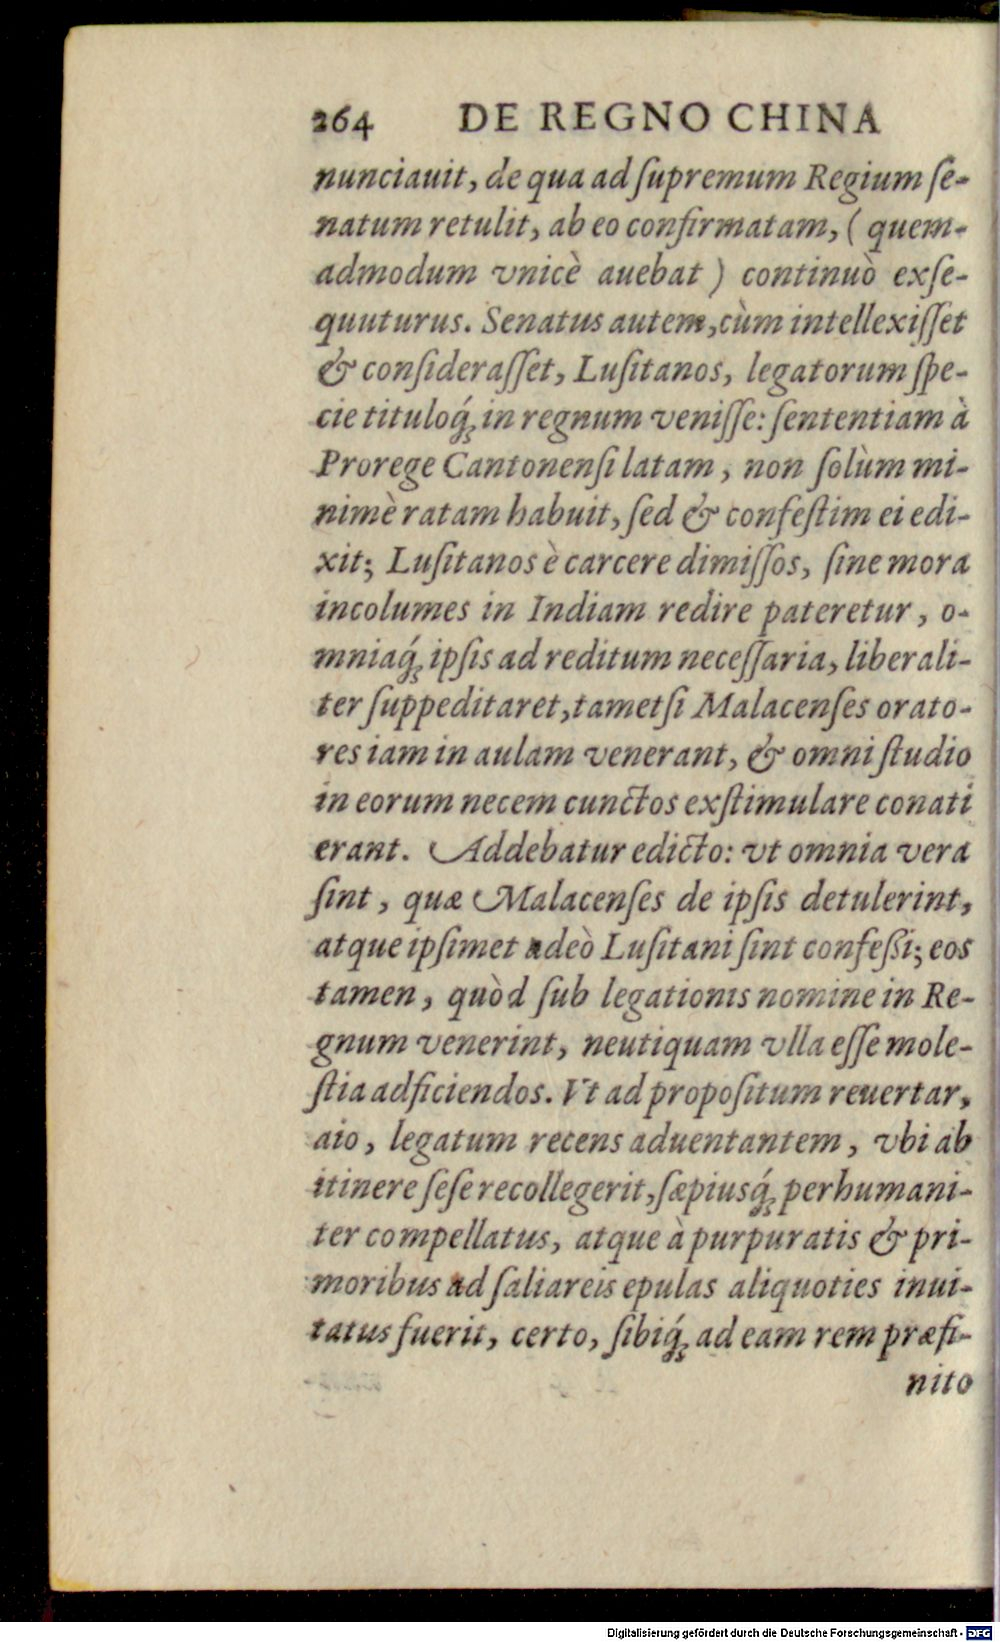 264 DE REGNO CHINA
nunciauit, de qua ad ſupremum Regium ſe-
natum retulit, ab eo confirmatam, ( quem-
admodum vnicè auebat ) continuò exſe-
quuturus. Senatus autem, cùm intellexiſſet
& conſideraſſet, Luſitanos, legatorum ſpe-
cie tituloq́; in regnum veniſſe: ſententiam à
Prorege Cantonenſi latam, non ſolùm mi-
nimè ratam habuit, ſed & confeſtim ei edi-
xit; Luſitanos è carcere dimiſſos, ſine mora
incolumes in Indiam redire pateretur, o-
mniaq́; ipſis ad reditum neceſſaria, liberali-
ter ſuppeditaret, tametſi Malacenſes orato-
res iam in aulam venerant, & omni ſtudio
in eorum necem cunctos exſtimulare conati
erant. Addebatur edicto: vt omnia vera
ſint, quæ Malacenſes de ipſis detulerint,
atque ipſimet adeò Luſitani ſint confeßi; eos
tamen, quòd ſub legationis nomine in Re-
gnum venerint, neutiquam vlla eſſe mole-
ſtia adficiendos. Vt ad propoſitum reuertar,
aio, legatum recens aduentantem, vbi ab
itinere ſeſe recollegerit, ſæpiusq́; perhumani-
ter compellatus, atque à purpuratis & pri-
moribus ad ſaliareis epulas aliquoties inui-
tatus fuerit, certo, ſibiq́; ad eam rem præfi-
nito
Digitalisierung gefördert durch die Deutsche Forschungsgemeinschaft - DFG